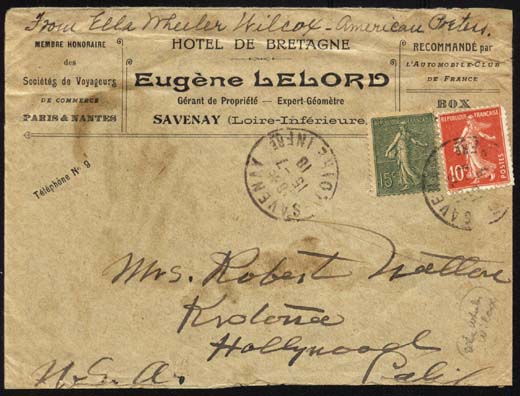 From Ella Wheeler Wilcox - American Poetess.
HOTEL DE BRETAGNE
MEMBRE HONORAIRE
des
Sociétés de Voyageurs
DE COMMERCE
PARIS & NANTES
Eugène LELORD
Gérant de Propriété — Expert-Géomètre
SAVENAY (Loire-Inférieure)
RECOMMANDÉ par
L'AUTOMOBILE-CLUB
DE FRANCE
BOX
Téléphone No 9
SAVENAY
15-7
18
15c
REPUBLIQUE FRANÇAISE
10c
POSTES
SAVENAY
Mrs. Robert Walton
Krotona
Hollywood
Calif
U.S.A.
Ella Wheeler
Wilcox